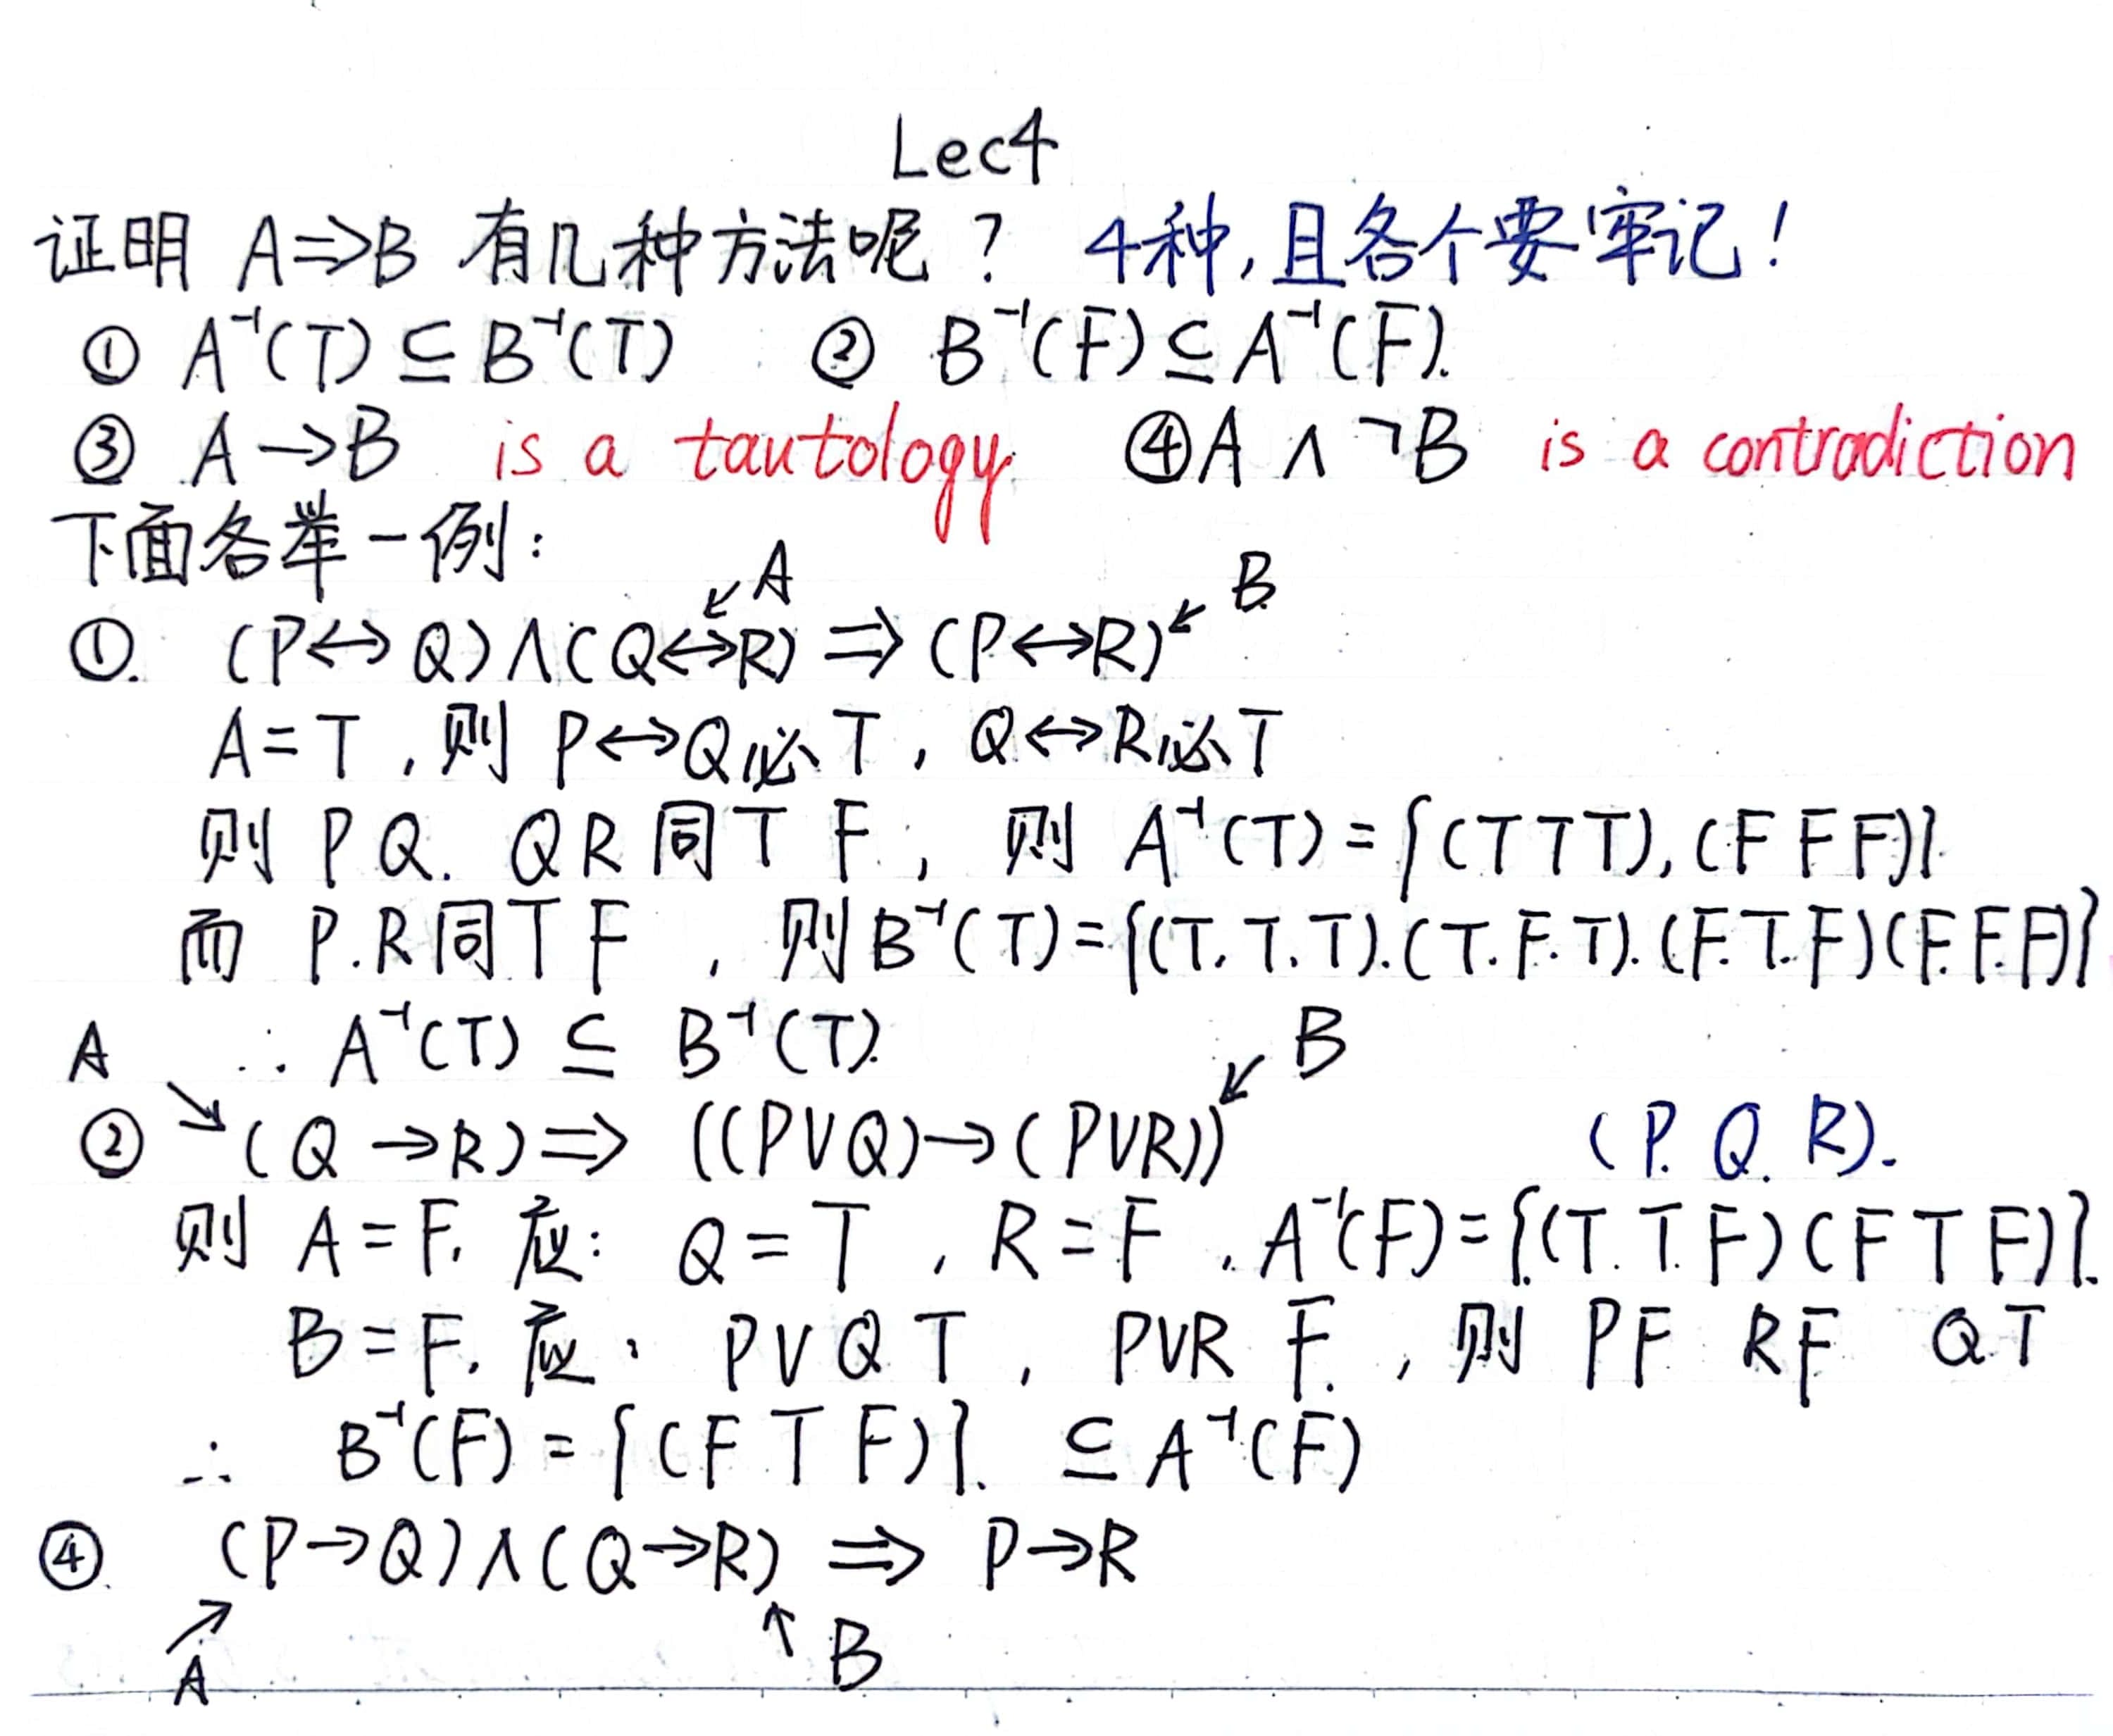 Lec4
证明 A⇒B 有几种方法呢？ 4种,且各个要牢记!
① A⁻¹(T) ⊆ B⁻¹(T) ② B⁻¹(F) ⊆ A⁻¹(F).
③ A→B is a tautology. ④ A ∧ ¬B is a contradiction
下面各举一例:
↙A ↙B
①. (P↔Q)∧(Q↔R) ⇒ (P↔R)
A=T,则 P↔Q必T, Q↔R必T
则 PQ. QR同TF, 则 A⁻¹(T)={(TTT),(FFF)}.
而 P.R同TF, 则B⁻¹(T)={(T.T.T).(T.F.T).(F.T.F)(F.F.F)}
A ∴ A⁻¹(T) ⊆ B⁻¹(T). ↙B
② ↘(Q→R)⇒ ((P∨Q)→(P∨R)) (P.Q.R).
则 A=F. 应: Q=T, R=F, A⁻¹(F)={(T.T.F)(FTF)}.
B=F. 应: P∨Q T, P∨R F., 则 PF RF QT
∴ B⁻¹(F)={(FTF)}. ⊆ A⁻¹(F)
④. (P→Q)∧(Q→R) ⇒ P→R
↗A ↑B